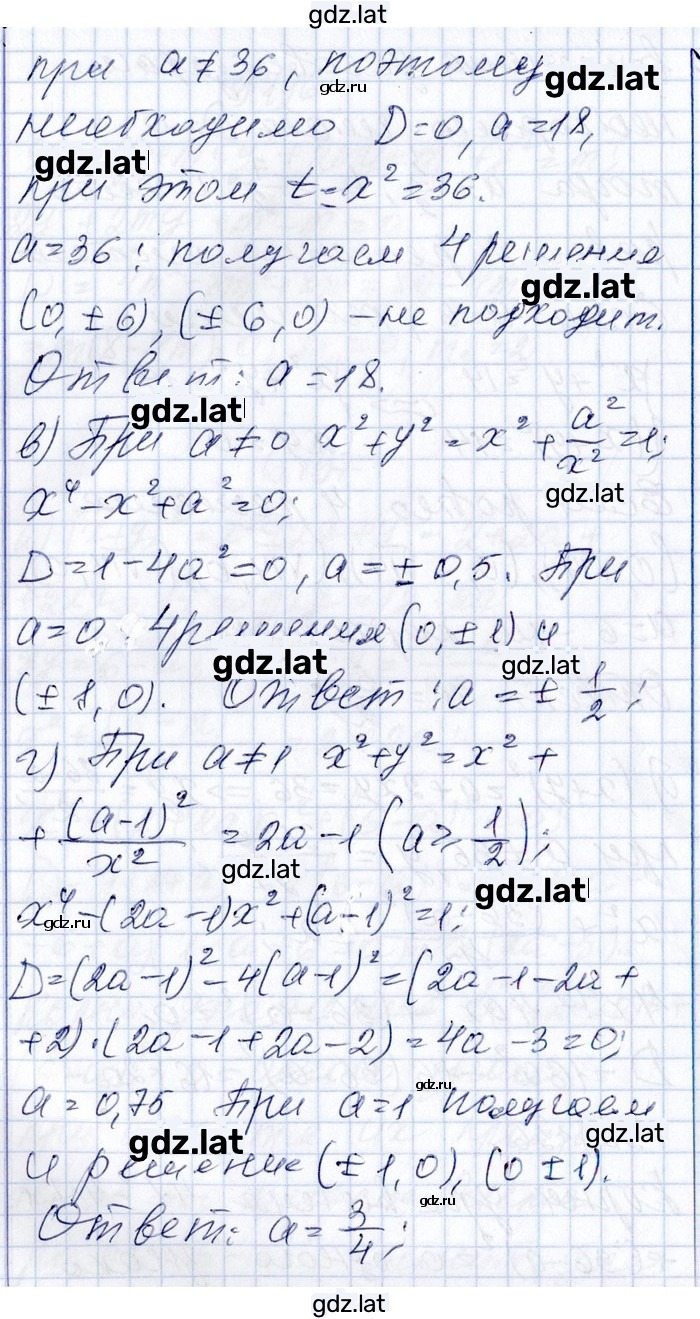 gdz.lat
при a ≠ 36, поэтому
gdz.lat
gdz.ru
необходимо D=0, a=18,
gdz.lat
при этом t=x²=36.
a=36: получаем 4 решения
gdz.lat
(0, ±6), (±6, 0) – не подходит.
Ответ: a=18.
gdz.lat
в) При a≠0 x²+y² = x² + a²/x² = 1;
gdz.lat
x⁴ - x² + a² = 0;
D=1-4a²=0, a=±0,5. При
a=0 4 решения (0, ±1) и
gdz.lat
gdz.lat
(±1, 0). Ответ: a = ± 1/2;
г) При a≠1 x²+y² = x² +
+ (a-1)²/x² = 2a-1 (a ≥ 1/2);
gdz.lat
gdz.lat
x⁴ - (2a-1)x² + (a-1)² = 1;
gdz.ru
D=(2a-1)² - 4(a-1)² = (2a-1-2a+
+2)·(2a-1+2a-2) = 4a-3=0;
gdz.ru
a = 0,75 При a=1 получаем
gdz.lat
gdz.lat
4 решение (±1, 0), (0 ±1).
gdz.ru
Ответ: a = 3/4;
gdz.lat